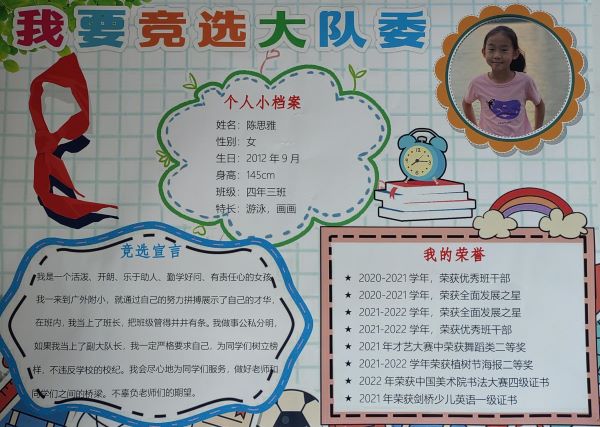 我要竞选大队委
个人小档案
姓名：陈思雅
性别：女
生日：2012 年 9 月
身高：145cm
班级：四年三班
特长：游泳，画画
竞选宣言
我是一个活泼、开朗、乐于助人、勤学好问、有责任心的女孩
我一来到广外附小，就通过自己的努力拼搏展示了自己的才华，
在班内，我当上了班长，把班级管得井井有条。我做事公私分明，
如果我当上了副大队长，我一定严格要求自己，为同学们树立榜
样，不违反学校的校纪。我会尽心地为同学们服务，做好老师和
同学们之间的桥梁。不辜负老师们的期望。
我的荣誉
★ 2020-2021 学年，荣获优秀班干部
★ 2020-2021 学年，荣获全面发展之星
★ 2021-2022 学年，荣获全面发展之星
★ 2021-2022 学年，荣获优秀班干部
★ 2021 年才艺大赛中荣获舞蹈类二等奖
★ 2021-2022 学年荣获植树节海报二等奖
★ 2022 年荣获中国美术院书法大赛四级证书
★ 2021 年荣获剑桥少儿英语一级证书